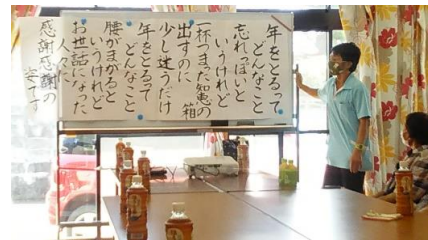 年をとるって
どんなこと
忘れっぽいと
いうけれど
一杯つまった知恵の箱
出すのに
少し迷うだけ
年をとるって
どんなこと
腰がまがると
いうけれど
お世話になった
人々に
感謝感謝の
姿です